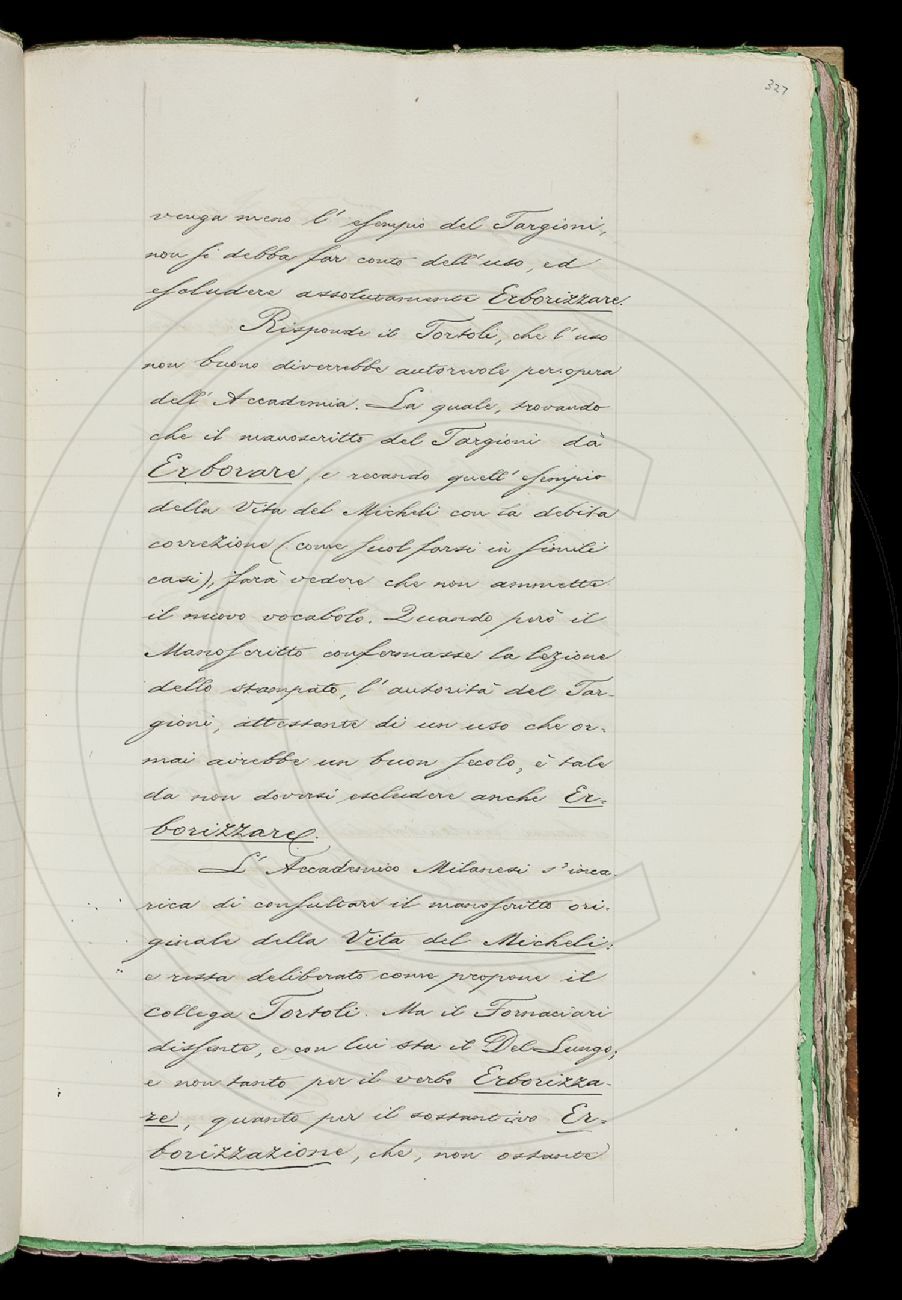 327
venga meno l'esempio del Targioni,
non si debba far conto dell'uso, ed
escludere assolutamente Erborizzare.
Risponde il Tortoli, che l'uso
non buono diverrebbe autorevole per opera
dell'Accademia. La quale, trovando
che il manoscritto del Targioni dà
Erborare, e recando quell'esempio
della Vita del Micheli con la debita
correzione (come suol farsi in simili
casi), farà vedere che non ammette
il nuovo vocabolo. Quando però il
Manoscritto confermasse la lezione
dello stampato, l'autorità del Tar-
gioni, attestante di un uso che or-
mai avrebbe un buon secolo, è tale
da non doversi escludere anche Er-
borizzare.
L'Accademico Milanesi s'inca-
rica di consultare il manoscritto ori-
ginale della Vita del Micheli:
e resta deliberato come propone il
Collega Tortoli. Ma il Fornaciari
dissente, e con lui sta il Del Lungo;
e non tanto per il verbo Erborizza-
re, quanto per il sostantivo Er-
borizzazione, che, non ostante